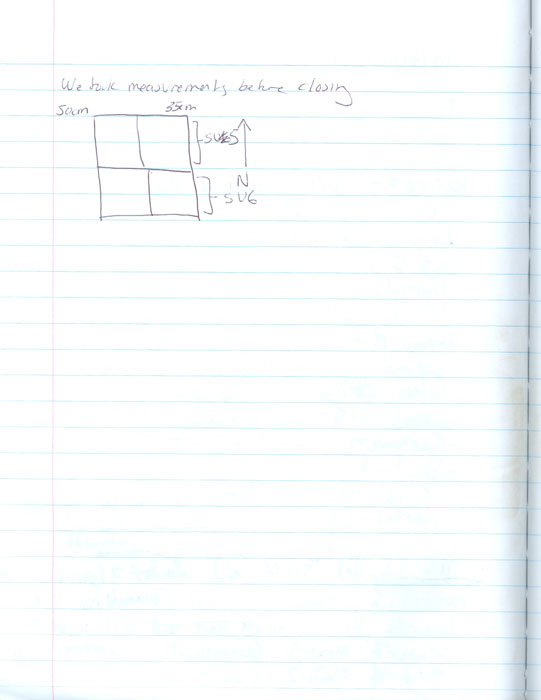 We took measurements before closing
50cm 35cm
SU5
N
SU6